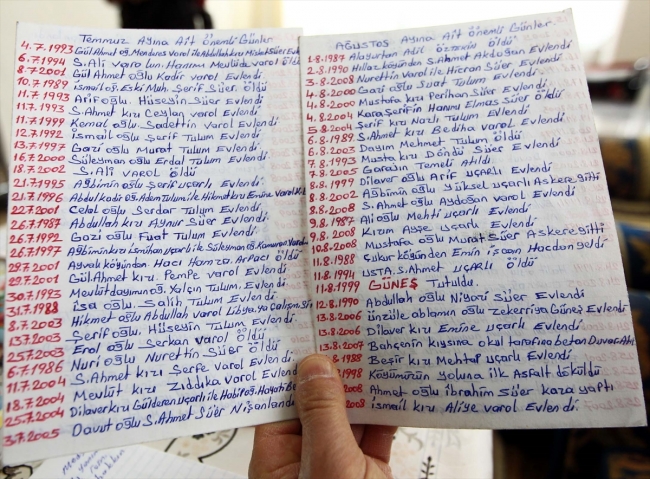 Temmuz Ayına Ait Önemli Günler
4.7.1993 Gül Ahmet oğ. Menderes varol ile Abdullah kızı
6.7.1994 S.Ali varolun. Hanımı Mevlüde varol öldü
8.7.2001 Gül Ahmet oğlu Kadir varol Evlendi
10.7.1989 ismail oğ. Eski Muh. Şerif Süer öldü
11.7.1993 Arif oğlu. Hüseyin Süer Evlendi
11.7.1993 S.Ahmet kızı Ceylan varol Evlendi
11.7.1999 Kemal oğlu Sadettin varol Evlendi
12.7.1992 ismail oğlu Şerif Tulum Evlendi
13.7.1997 Gazi oğlu Murat Tulum Evlendi
16.7.2000 Süleyman oğlu Erdal Tulum Evlendi
18.7.2002 S.Ali varol öldü
21.7.1995 Ağbimin oğlu Şerif uçarlı Evlendi
21.7.1996 Abdulkadir oğ. Adem Tulum ile Hikmet kızı Emine varol
22.7.2001 Celal oğlu Serdar Tulum Evlendi
26.7.1987 Abdullah kızı Aynur Süer Evlendi
26.7.1992 Gazi oğlu Fuat Tulum Evlendi
26.7.1997 Ağbimin kızı Emihan uçarlı ile Süleyman oğ. Kamuran
29.7.2001 Ayvalı köyünden Hacı Hamza Arpacı öldü
29.7.2001 Gül.Ahmet kızı. Pempe varol Evlendi
30.7.1993 Mevlüt dayımın oğ. Yalçın Tulum. Evlendi
31.7.1988 isa oğlu. Salih Tulum Evlendi
8.7.2003 Hikmet oğlu Abdullah varol Libya.ya Çalışm.
13.7.2003 Şerif oğlu. Hüseyin Tulum Evlendi
25.7.2003 Erol oğlu Serkan varol Evlendi
6.7.1986 Nuri oğlu Nurettin Süer öldü
11.7.2004 S.Ahmet kızı Şerfe varol Evlendi
18.7.2004 Mevlüt kızı Ziddıka varol Evlendi
25.7.2004 Dilaver kızı Gülderen uçarlı ile Habib oğ.
3.7.2005 Davut oğlu S.Ahmet Süer Nişanlandı
AĞUSTOS Ayına Ait Önemli Günler
1-8-1987 Alayurtan Adil ÖZTEKİN öldü
2-8-1990 Hillaz köyünden S.Ahmet Akdoğan Evlendi
3-8-2008 Nurettin Varol ile Hicran Süer Evlendi
4-8-2000 Gazi oğlu Suat Tulum Evlendi
4-8-2000 Mustafa kızı Perihan Süer Evlendi
4.8.2004 Kara Şerifin Hanımı Elmas Süer öldü
5.8.2004 Şerif kızı Nazlı Tulum Evlendi
6.8.1989 S.Ahmet kızı Bediha varol Evlendi
6.8.2003 Dayım Mehmet Tulum öldü
7.8.1993 Musta kızı Döndü Süer Evlendi
7.8.2005 Garajın Temeli Atıldı
8.8.1999 Dilaver oğlu Arif uçarlı Evlendi
8.8.2002 Ağbimin oğlu Yüksel uçarlı Askere gitti
8.8.2002 S.Ahmet oğlu Aydoğan varol Evlendi
9.8.1987 Ali oğlu Mehti uçarlı Evlendi
9.8.2008 Kızım Ayşe uçarlı Evlendi
10.8.2008 Mustafa oğlu Murat Süer Askere gitti
11.8.1988 Çukur köyünden Emin isan Hacdan geldi
11.8.1994 USTA.S.Ahmet uçarlı öldü
11.8.1999 GÜNEŞ Tutuldu.
12.8.1990 Abdullah oğlu Niyazi Süer Evlendi
13.8.2006 ünzüle ablamın oğlu Zekerriya Güneş Evlendi
13.8.2006 Dilaver kızı Emine uçarlı Evlendi
13.8.2007 Bahçenin kıysına okul tarafına beton Duvar
8.1988 Beşir kızı Mehtap uçarlı Evlendi
1998 Köyümüzün yoluna ilk Asfalt döküldü
2008 Ahmet oğlu ibrahim Süer kaza yaptı
2008 ismail kızı Aliye varol Evlendi